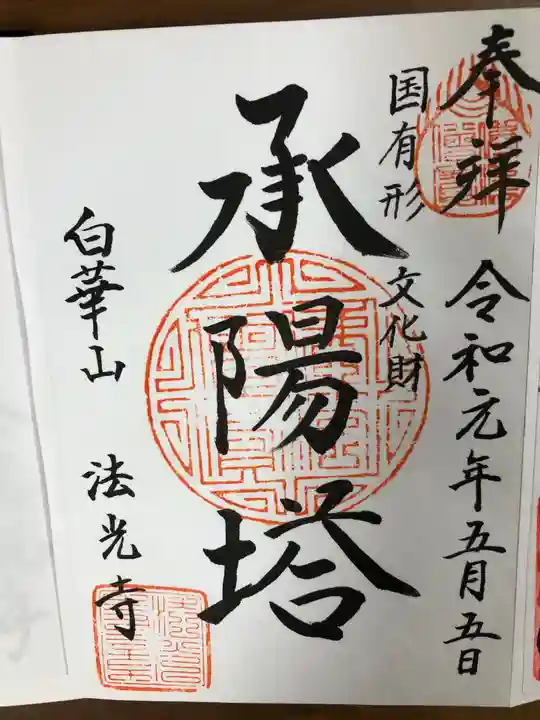 奉拝
令和元年五月五日
国有形文化財
承陽塔
白華山
法光寺